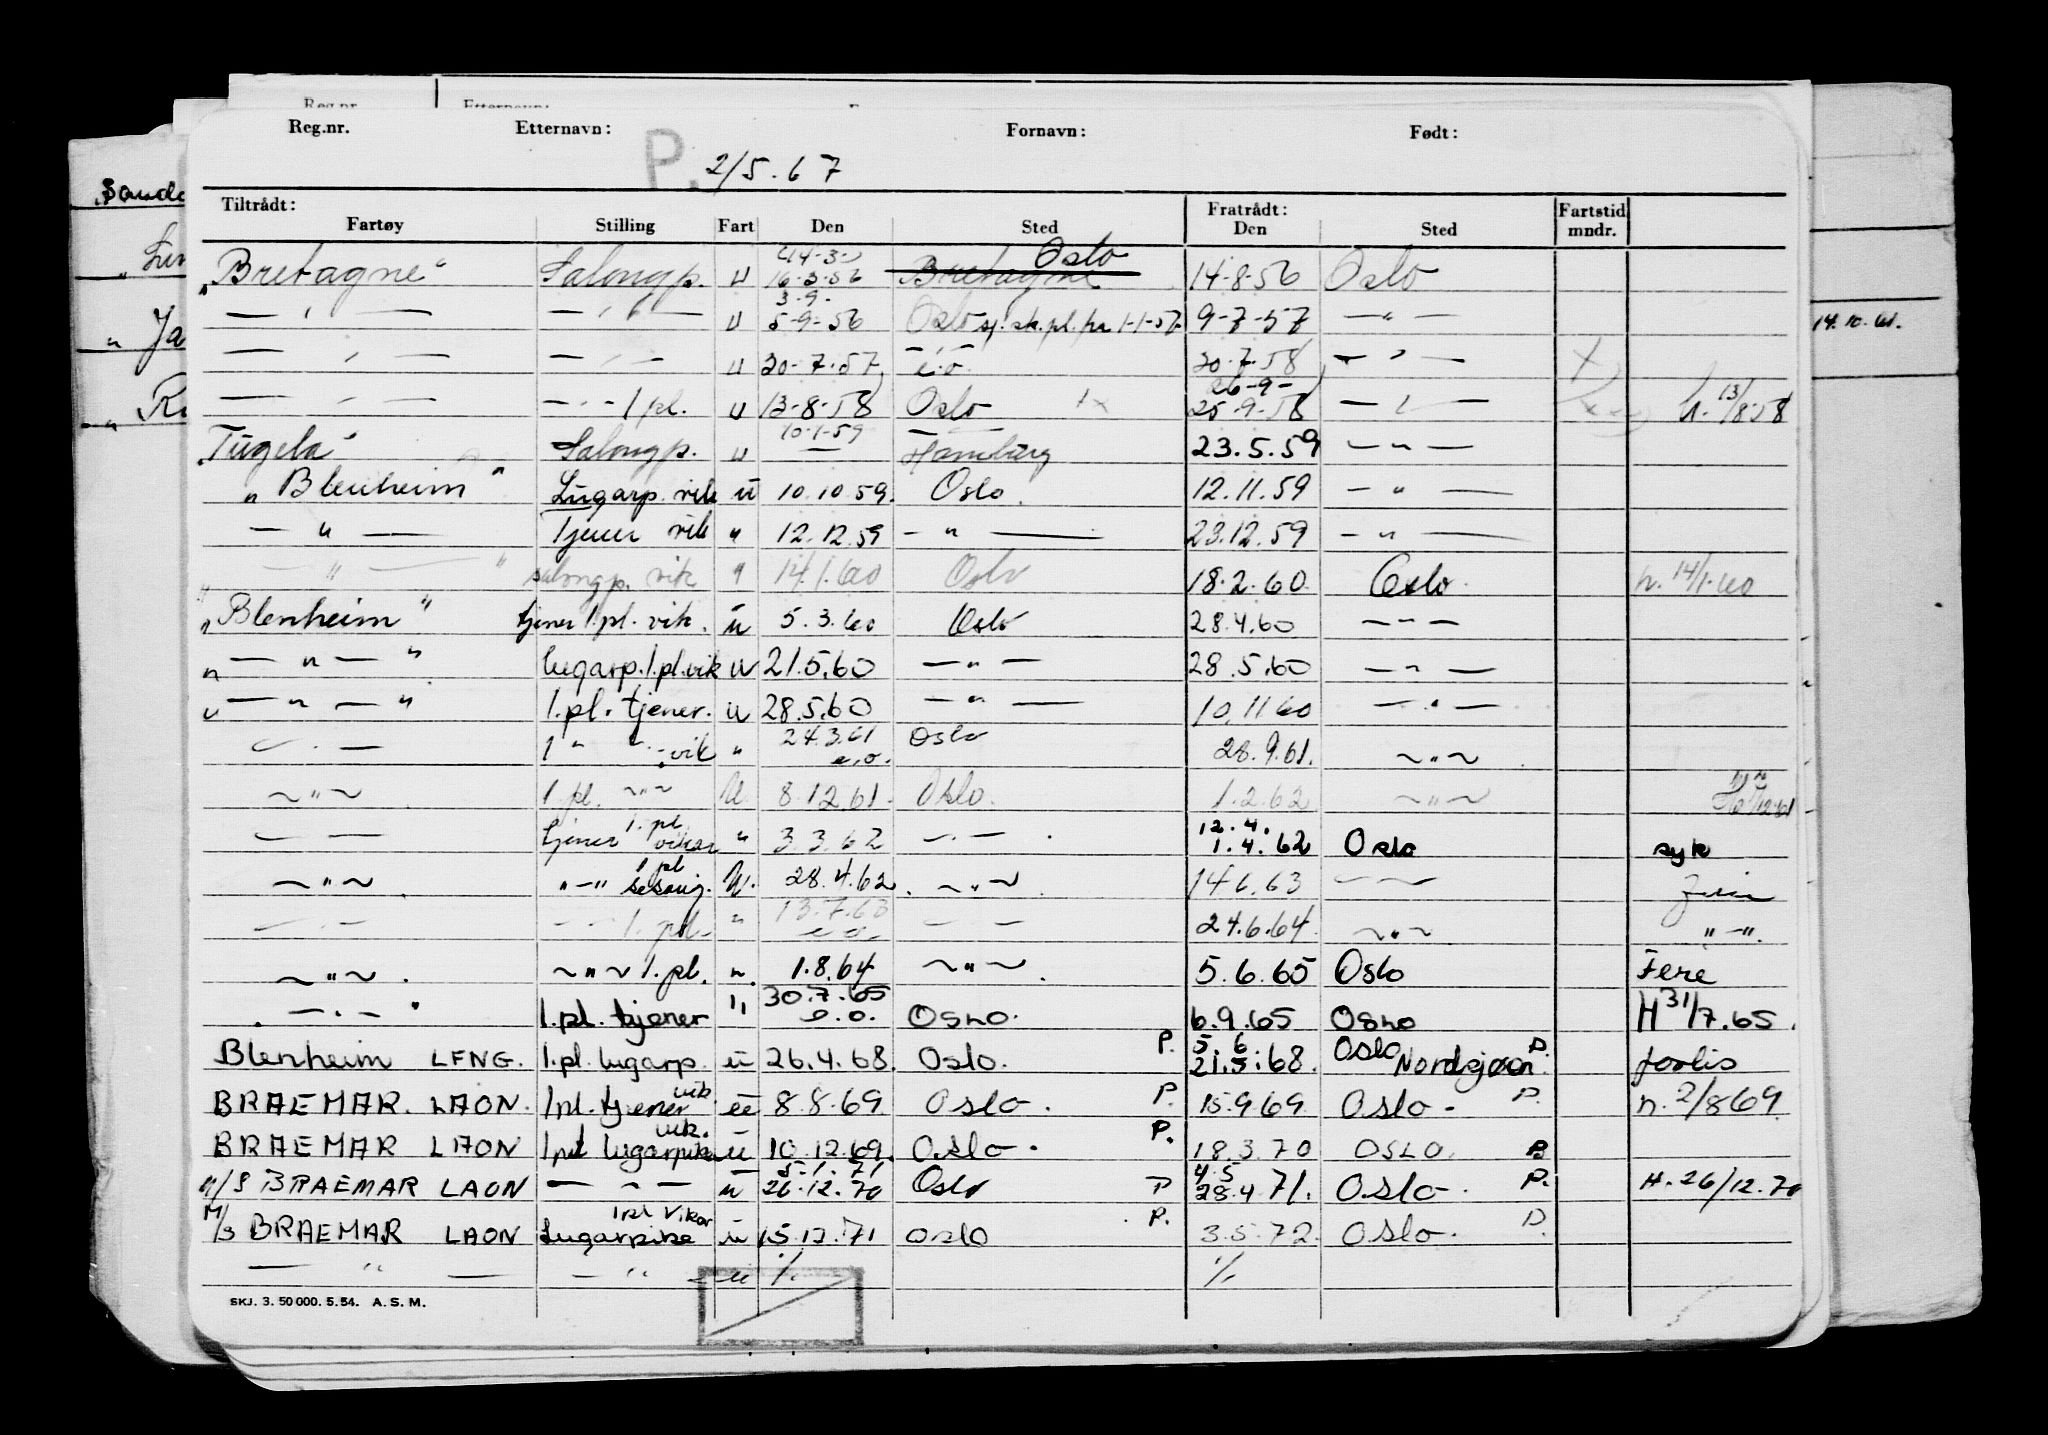 Reg.nr. Etternavn: Fornavn: Født:
P. 2/5.67
Tiltrådt: Fratrådt: Fartstid
Fartøy Stilling Fart Den Sted Den Sted mndr.
14-3- Oslo
"Bretagne" Salongp. u 16-3-56 Bretagne 14-8-56 Oslo
3-9-
— " — — " — u 5-9-56 Oslo sj.sk.pl.fra 1-1-57 9-7-57 — " —
— " — — " — u 20-7-57 e.o. 20-7-58 — " — x
26-9-
— " — — " — 1 pl. u 13-8-58 Oslo 25-9-58 — " — h. 13/8-58
10-1-59
"Tugela" Salongp. u — Hamburg 23.5.59 — " —
"Blenheim" Lugarp. vik u 10.10.59. Oslo. 12.11.59 — " —
— " — Tjener vik " 12.12.59 — " — 23.12.59 — " —
" — " — " salongp. vik " 14.1.60 Oslo 18.2.60 Oslo. h. 14/1.60
"Blenheim" tjener 1.pl. vik. u 5.3.60 Oslo 28.4.60 — " —
" — " — " lugarp. 1.pl.vik u 21.5.60 — " — 28.5.60 — " —
" — " — " 1.pl. tjener. u 28.5.60 — " — 10.11.60 — " —
— " — 1 " " vik " 24.3.61 e.o. Oslo 28.9.61. — " —
— " — 1 pl. — " — U 8.12.61. Oslo. 1.2.62 — " —
1.pl 12.4.
— " — tjener vikar " 3.3.62 — " — 1.4.62 Oslo syk
1 pl
— " — " — " sesong. U. 28.4.62 — " — 14.6.63 — " —
— " — — " — 1. pl. " 13.7.63 e.o. — " — 24.6.64. — " — " — ".
— " — — " — 1.pl. " 1.8.64 — " — 5.6.65 Oslo Fere
" — " — " 1.pl. tjener " 30.7.65 e.o. OSLO. 6.9.65 OSLO H 31/7.65.
5 6 Oslo
Blenheim LFNG. 1.pl. lugarp. u 26.4.68. Oslo. P. 21.5.68. Nordsjøen P. forlis
vik.
BRAEMAR. LAON. 1pl. tjener u 8.8.69. Oslo. P. 15.9.69. Oslo - P. n. 2/8 69
vik.
BRAEMAR LAON 1.pl lugarpike u 10.12.69. Oslo. P. 18.3.70 OSLO. P
5.1.71 4.5
M/S BRAEMAR LAON — " — u 26.12.70 Oslo P 28.4.71. Oslo. P. H. 26/12.70
1pl vikar
M/S BRAEMAR LAON Lugarpike u 15.12.71 Oslo P. 3.5.72. Oslo. P.
— " — — " — u %. %.
SKJ. 3. 50 000. 5. 54. A. S. M.
14.10.61.